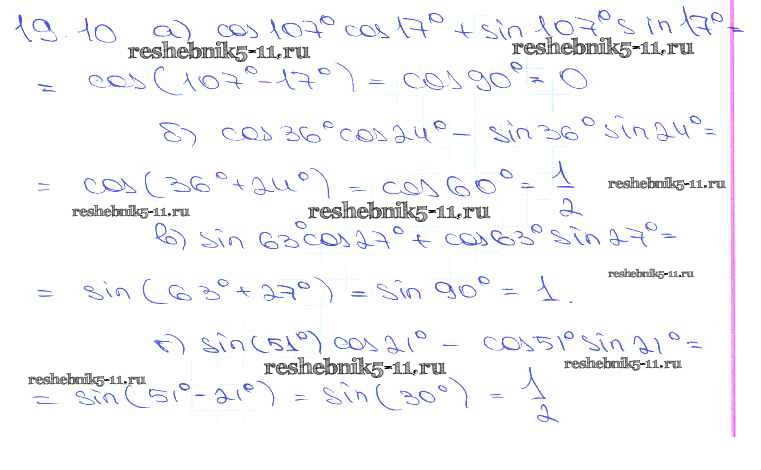 19.10 а) cos107° cos17° + sin107° sin17° =
reshebnik5-11.ru reshebnik5-11.ru
= cos(107°-17°) = cos90° = 0
б) cos36°cos24° - sin36° sin24° =
= cos(36°+24°) = cos60° = 1/2 reshebnik5-11.ru
reshebnik5-11.ru reshebnik5-11.ru
в) sin 63°cos27° + cos63° sin27° =
reshebnik5-11.ru
= sin(63°+27°) = sin 90° = 1.
г) sin(51°) cos21° - cos51° sin 21° =
reshebnik5-11.ru reshebnik5-11.ru reshebnik5-11.ru
= sin(51°-21°) = sin(30°) = 1/2